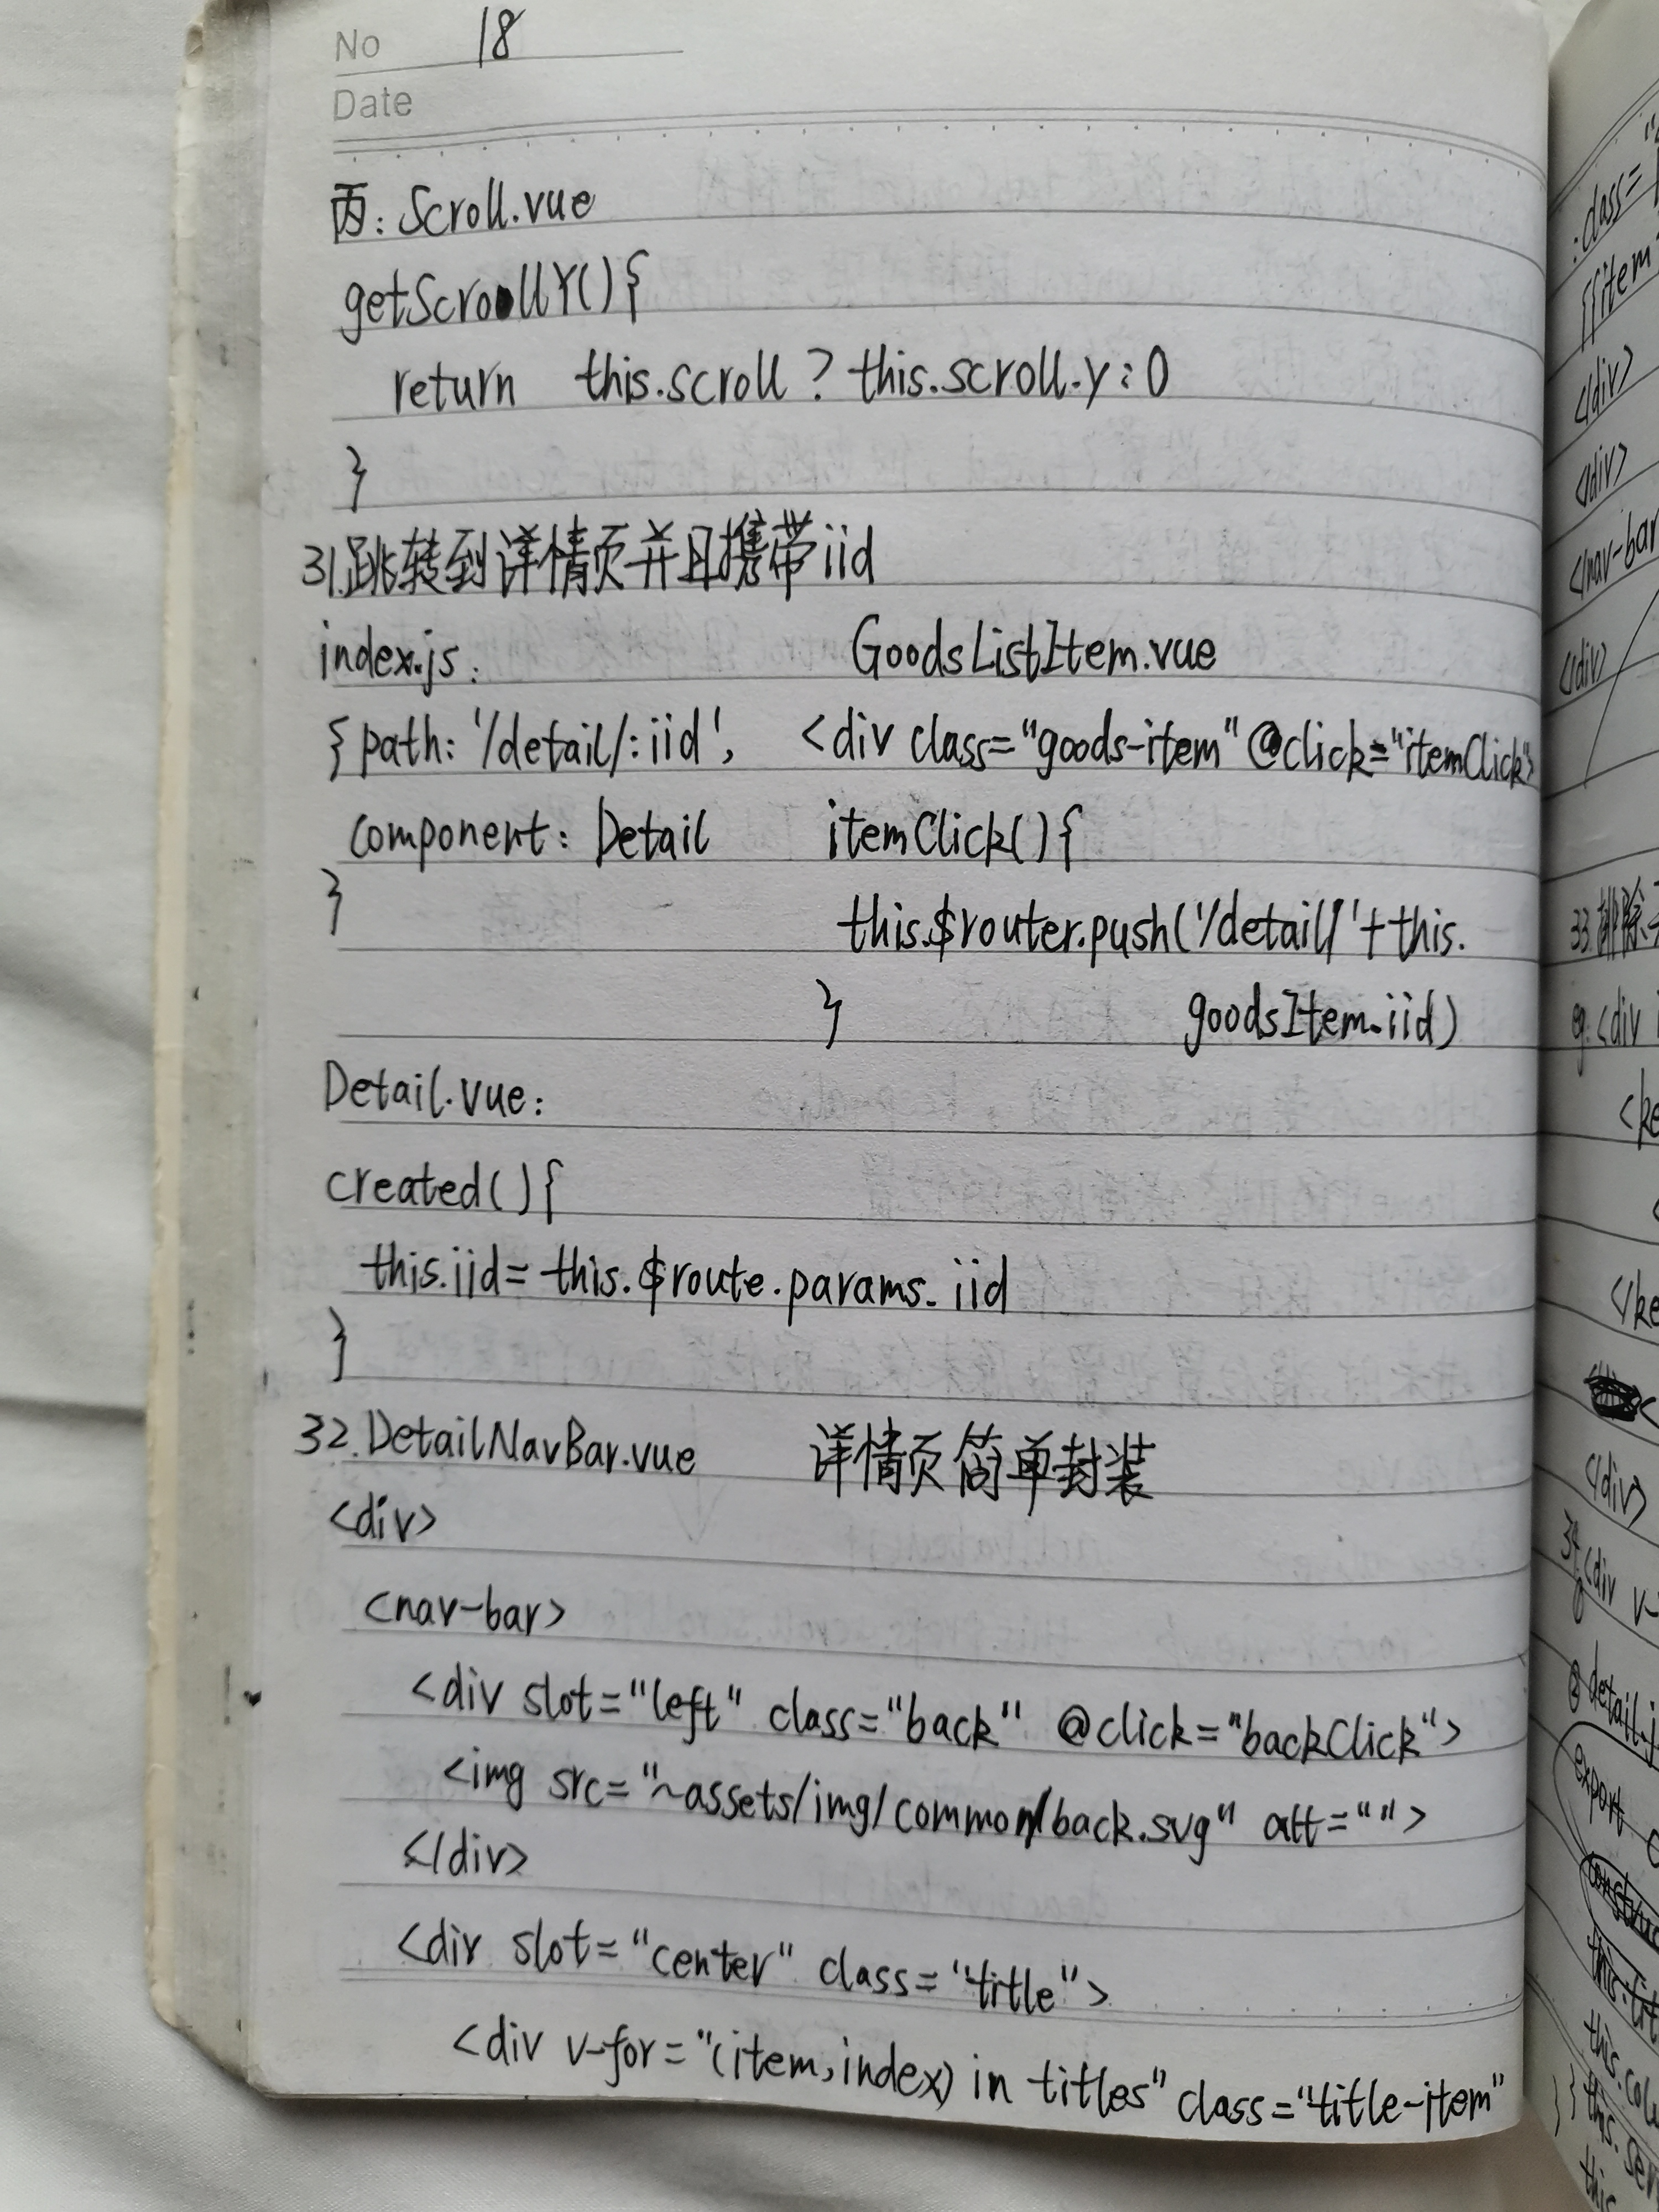 No 18
Date
丙: Scroll.vue
getScrollY(){
return this.scroll ? this.scroll.y : 0
}
31.跳转到详情页并且携带iid
index.js: GoodsListItem.vue
{path: '/detail/:iid', <div class="goods-item" @click="itemClick">
component: Detail itemClick(){
} this.$router.push('/detail/'+this.
} goodsItem.iid)
Detail.vue:
created(){
this.iid = this.$route.params.iid
}
32.DetailNavBar.vue 详情页简单封装
<div>
<nav-bar>
<div slot="left" class="back" @click="backClick">
<img src="~assets/img/common/back.svg" alt="">
</div>
<div slot="center" class="title">
<div v-for="(item,index) in titles" class="title-item"
:class=
{{item
</div>
</div>
</nav-bar
</div>
33.排除
eg:<div
<ke
</ke
</div>
34.<div v-
② detail.j
export
this.colu
this.ser
this